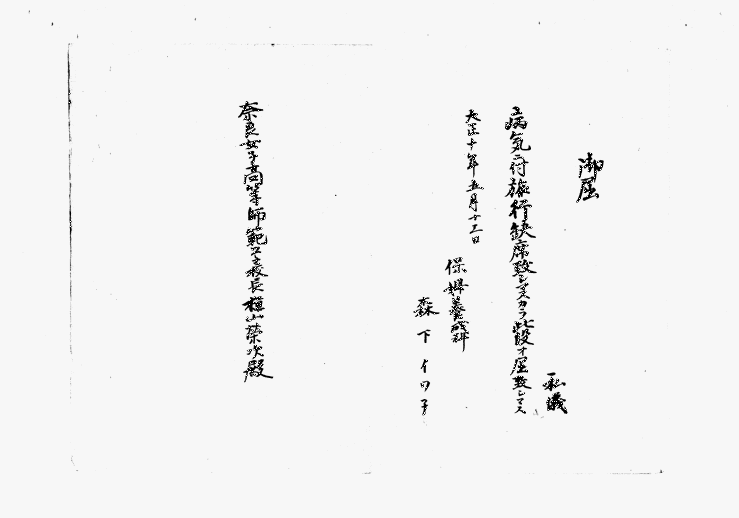 御届
私儀
病気ニ付旅行缺席致シマスカラ此段オ届致シマス
大正十年五月十三日
保姆養成科
森下イワ子
奈良女子高等師範学校長槇山榮次殿